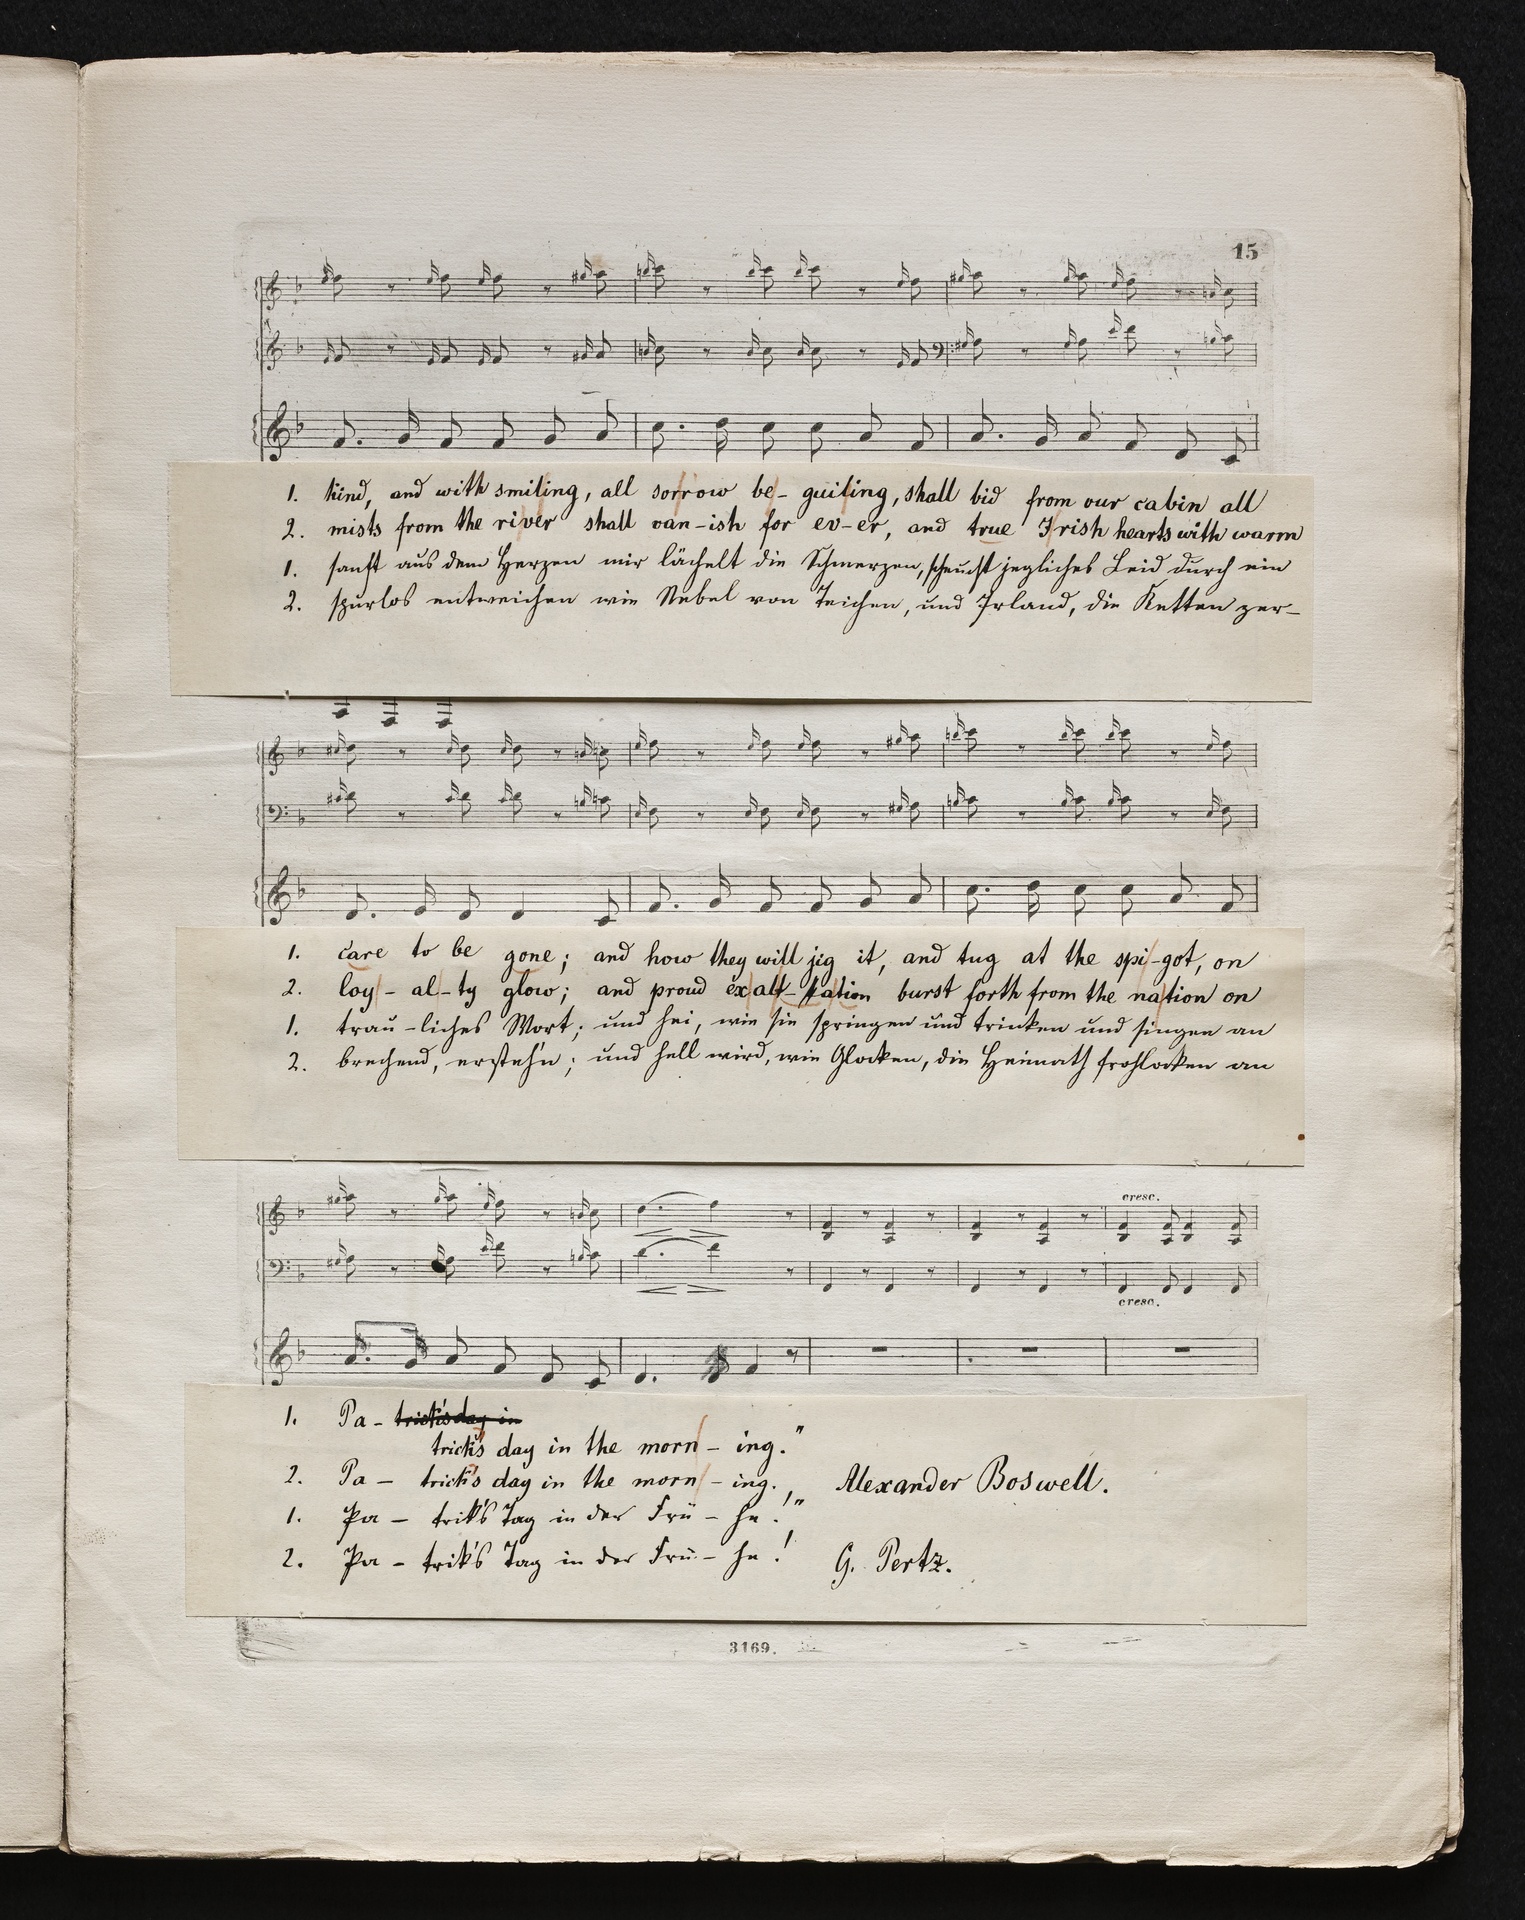 15
1. kind, and with smiling, all sorrow be- guiling, shall bid from our cabin all
2. mists from the river shall van-ish for ev-er, and true Irish hearts with warm
1. sanft aus dem Herzen mir lächelt die Schmerzen, scheucht jegliches Leid durch ein
2. spurlos entweichen wie Nebel von Teichen, und Irland, die Ketten zer-
1. care to be gone; and how they will jig it, and tug at the spi-got, on
2. loy - al-ty glow; and proud exalt-tation burst forth from the nation on
1. trau-liches Wort; und hei, wie sie springen und trinken und singen an
2. brechend, ersteh'n; und hell wird, wie Glocken, die Heimath frohlocken an
cresc.
cresc.
1. Pa- trick's day in
trick's day in the morn - ing."
2. Pa - trick's day in the morn - ing. Alexander Boswell.
1. Pa - trik's Tag in der Frü - he!"
2. Pa - trik's Tag in der Frü - he! G. Pertz.
3169.